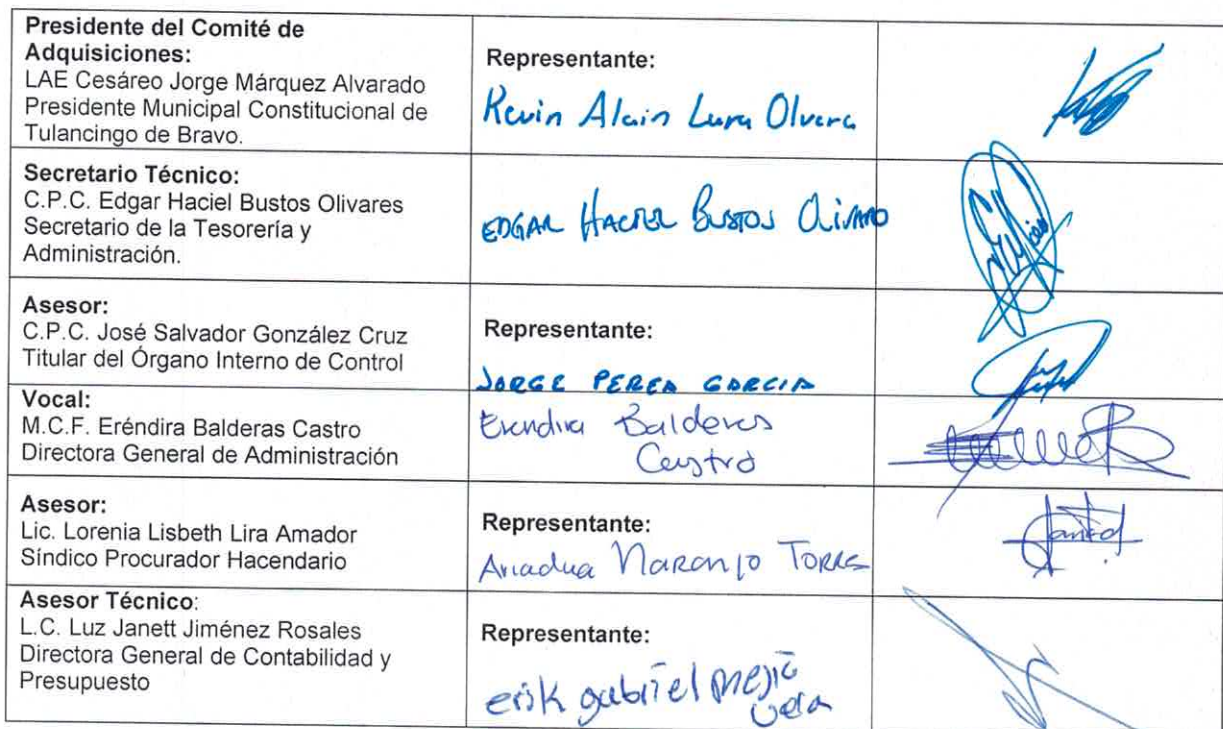 Presidente del Comité de
Adquisiciones:
LAE Cesáreo Jorge Márquez Alvarado
Presidente Municipal Constitucional de
Tulancingo de Bravo.
Representante:
Kevin Alain Luna Olvera
Secretario Técnico:
C.P.C. Edgar Haciel Bustos Olivares
Secretario de la Tesorería y
Administración.
EDGAR HACIEL BUSTOS
Asesor:
C.P.C. José Salvador González Cruz
Titular del Órgano Interno de Control
Representante:
JORGE PEREA GARCIA
Vocal:
M.C.F. Eréndira Balderas Castro
Directora General de Administración
Erendira Balderas
Castro
Asesor:
Lic. Lorenia Lisbeth Lira Amador
Síndico Procurador Hacendario
Representante:
Ariadna Naranjo Torres
Asesor Técnico:
L.C. Luz Janett Jiménez Rosales
Directora General de Contabilidad y
Presupuesto
Representante:
erik gabriel mejia